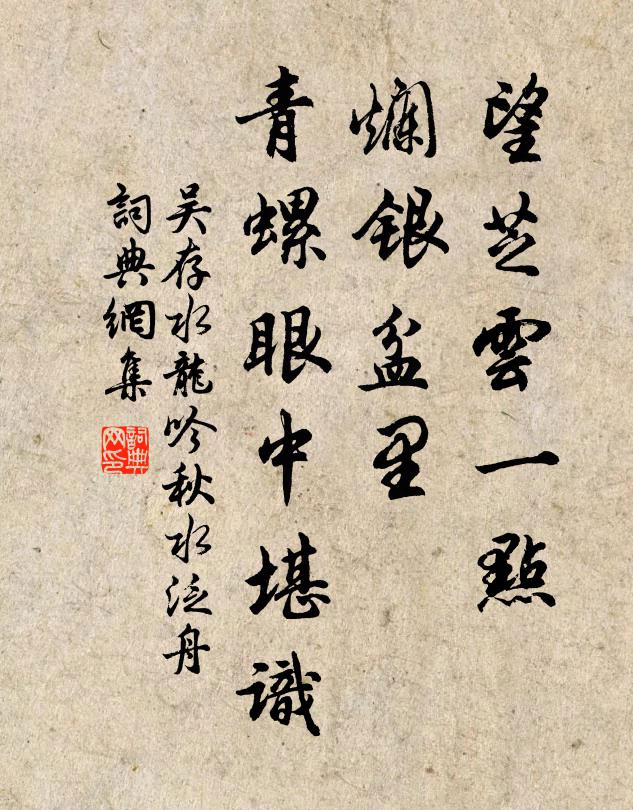 望芝雲一點
爛銀盆里
青螺眼中堪識
吳存水龍吟秋水泛舟
詞典網集
詞典
网印